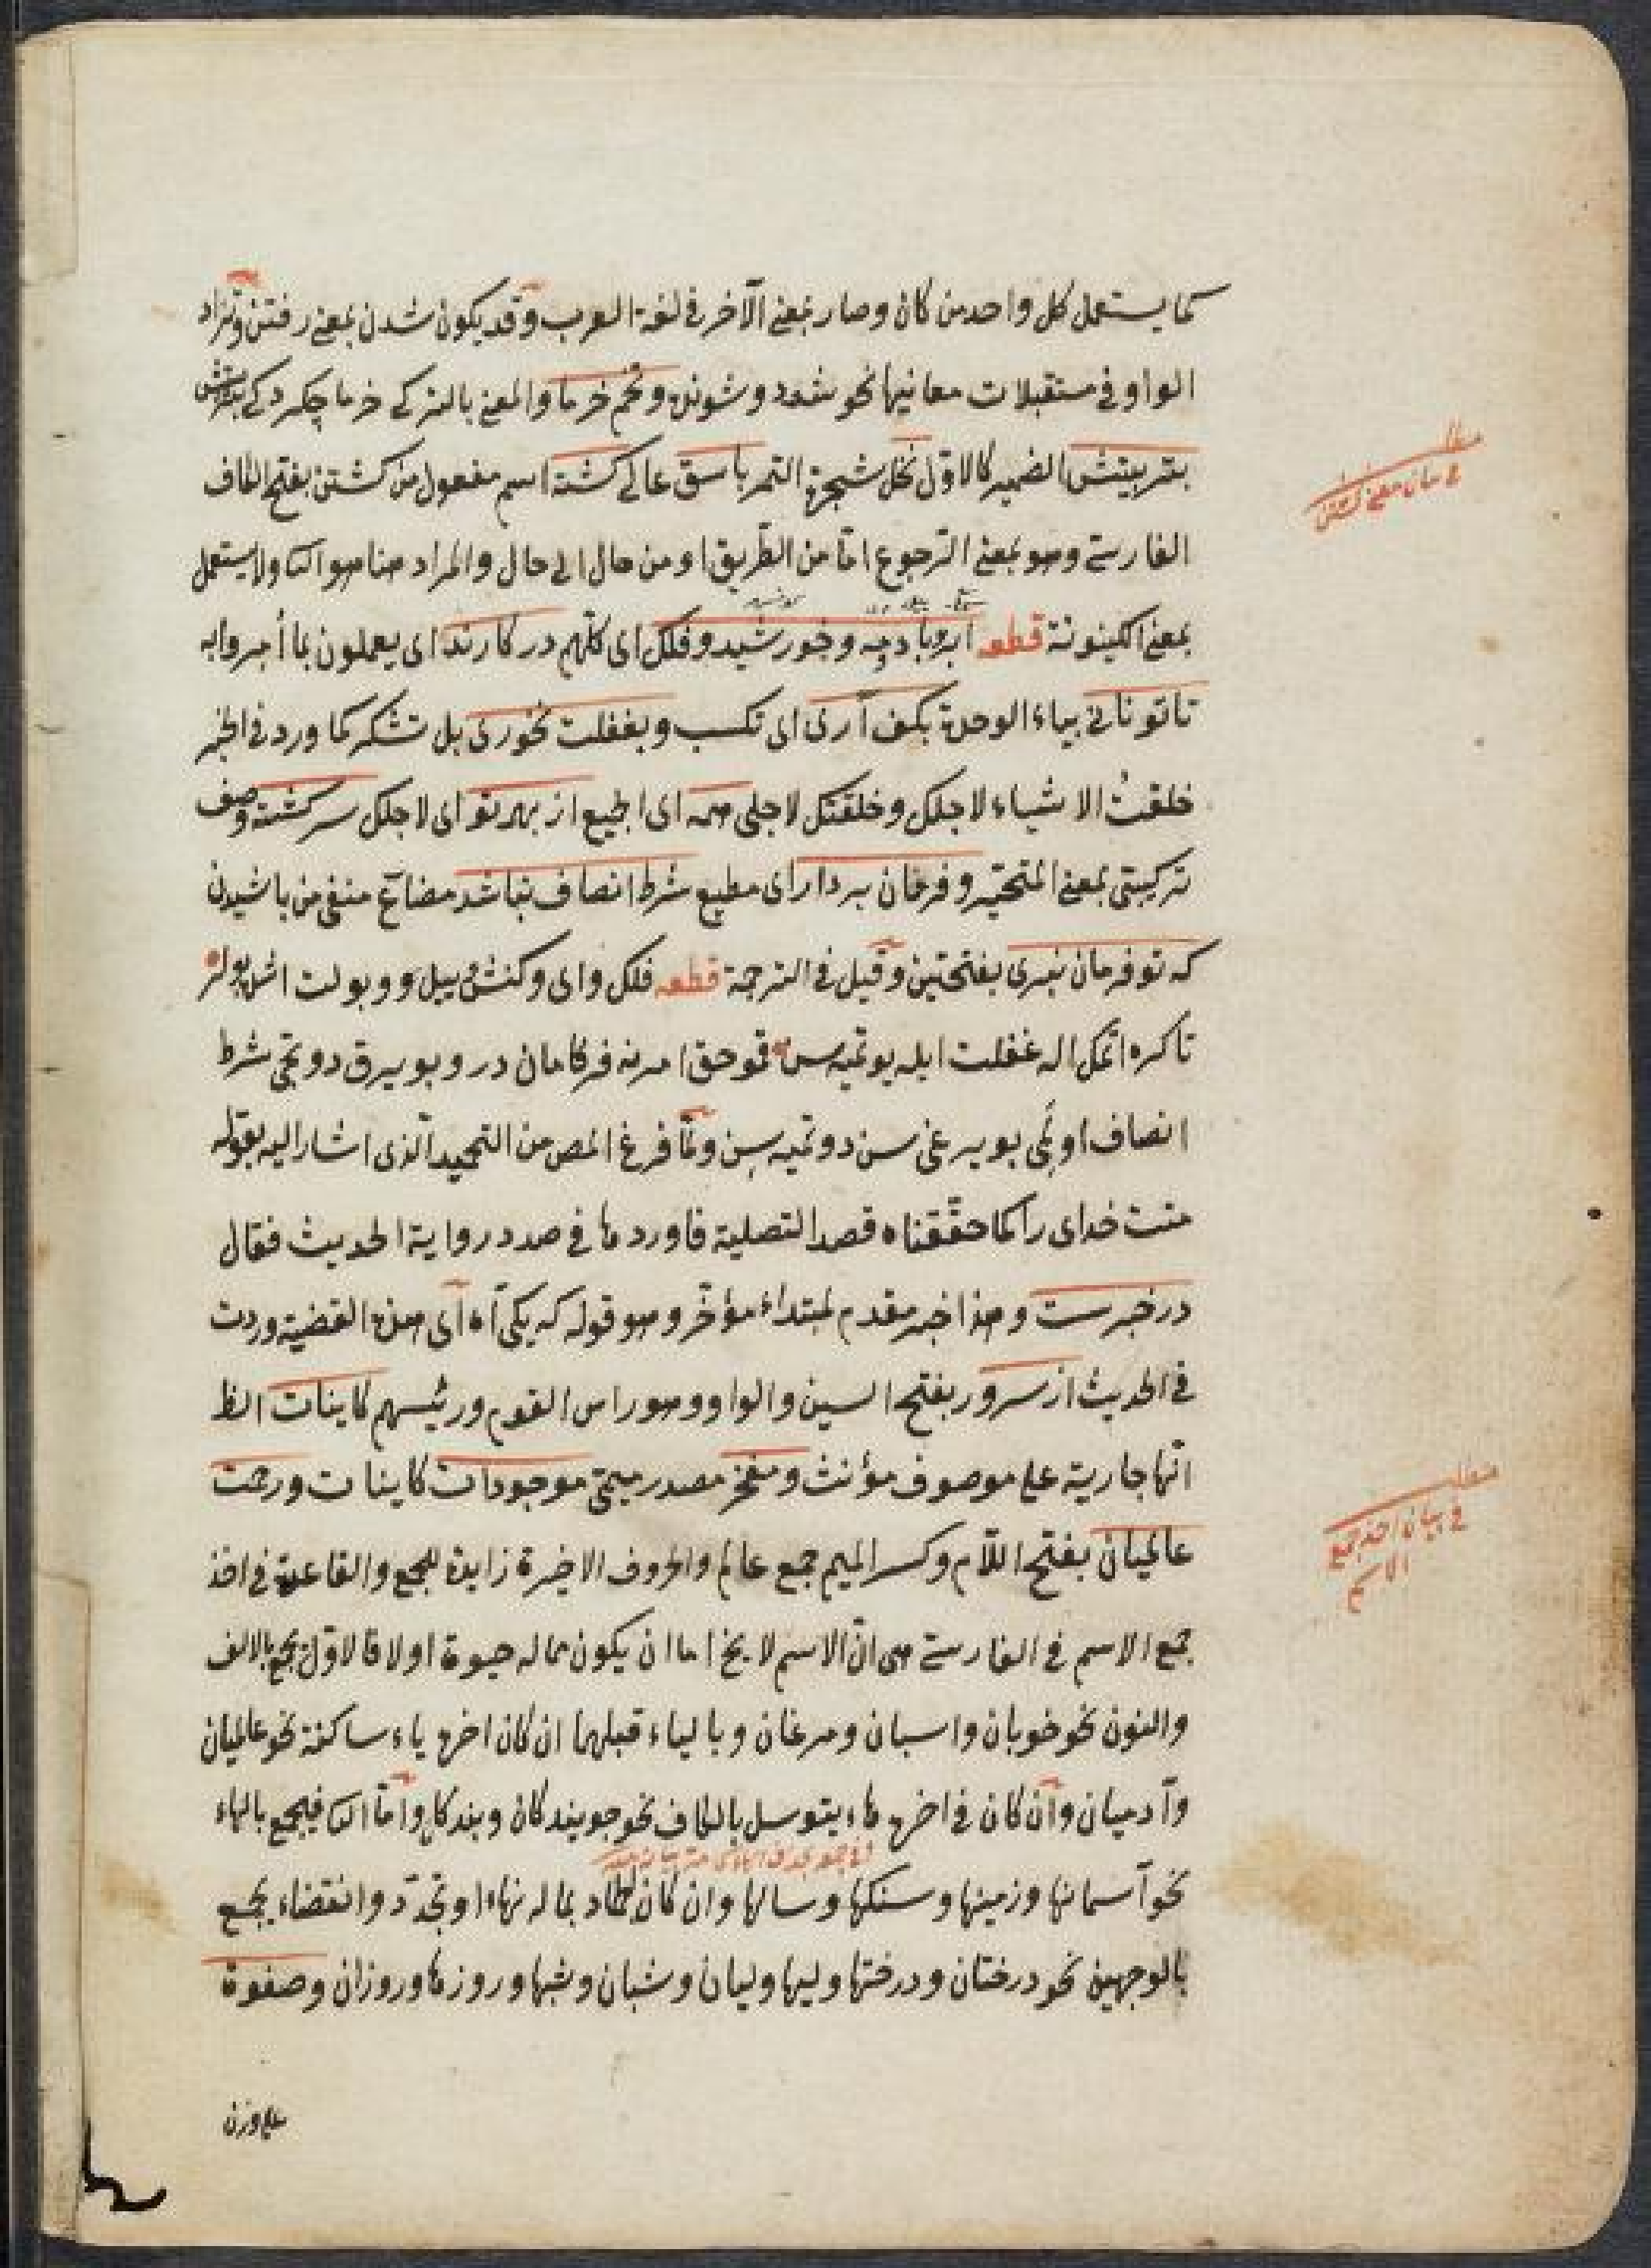 كما يستعمل كل واحد من كان وصار بمعنى الآخر في لغة العرب وقد يكون شدن بمعنى رفتن وتزاد
الواو في مستقبلات معانيها نحو شود وشوند وتخم خرما والمعنى بالتركي خرما چكردكي
بتربيتش الضمير كالاول نخل شجرة التمر باسق عالي كشته اسم مفعول من كشتن بفتح الكاف
الفارسي وهو بمعنى الرجوع اما من الطريق او من حال الى حال والمراد هنا هو الثا ولا يستعمل
بمعنى الكينونة قطعه ابر وباد ومه وخورشيد وفلك اى كلهم در كارند اى يعملون بما أمروا به
تا تو نانى بياء الوحدة بكف آرى اى تكسب وبغفلت نخورى بل تشكر كما ورد في الخبر
خلقتُ الاشياء لاجلك وخلقتك لاجلى همه اى الجميع از بهر تو اى لاجلك سركشته وصف
تركيبى بمعنى المتحير وفرمان بردار اى مطيع شرط انصاف نباشد مضارع منفى من باشيدن
كه تو فرمان نبرى بفتحتين وقيل في الترجمة قطعه فلك واى وكنش ويل وبولت
تا كره اتمك اله غفلت ايله يوتميه سن قمو حق امرنه فركامان در وبويرق دوتجى شرط
انصاف اولمى بويرغى سن دوتميه سن ولما فرغ المص من التحميد الذى اشار اليه بقوله
منت خداى را كما حققناه قصد التصلية فاوردها في صدد رواية الحديث فقال
در خبرست وهذا خبر مقدم لمبتداء مؤخر وهو قوله كه يكى آه اى هذه القضية وردت
في الحديث از سرور بفتح السين والواو وهو راس القوم ورئيسهم كاينات الظ
انها جارية على موصوف مؤنث ومفخر مصدر ميمى موجودات كاينات ورحمت
عالميان بفتح اللام وكسر الميم جمع عالم والحروف الاخيرة زايدة للجمع والقاعدة في اخذ
جمع الاسم في الفارسي هى ان الاسم لا يخ اما ان يكون مما له حيوة اولا فالاول يجمع بالالف
والنون نحو خوبان واسبان ومرغان وبالياء قبلهما ان كان اخره ياء ساكنة نحو عالميان
وآدميان وان كان في اخره هاء يتوسل بالكاف نحو جويندكان وبندكان واما الثا فيجمع بالهاء
نحو آسمانها وزمينها وسنكها وسالها وان كان المراد بما له نماء او تجدد وانقضاء يجمع
بالوجهين نحو درختان ودرختها ولبها ولبان وشبان وشبها وروزها وروزان وصفوة
على وزن
مطلب
في بيان معنى كشتن
مطلب
في بيان اخذ جمع
الاسم